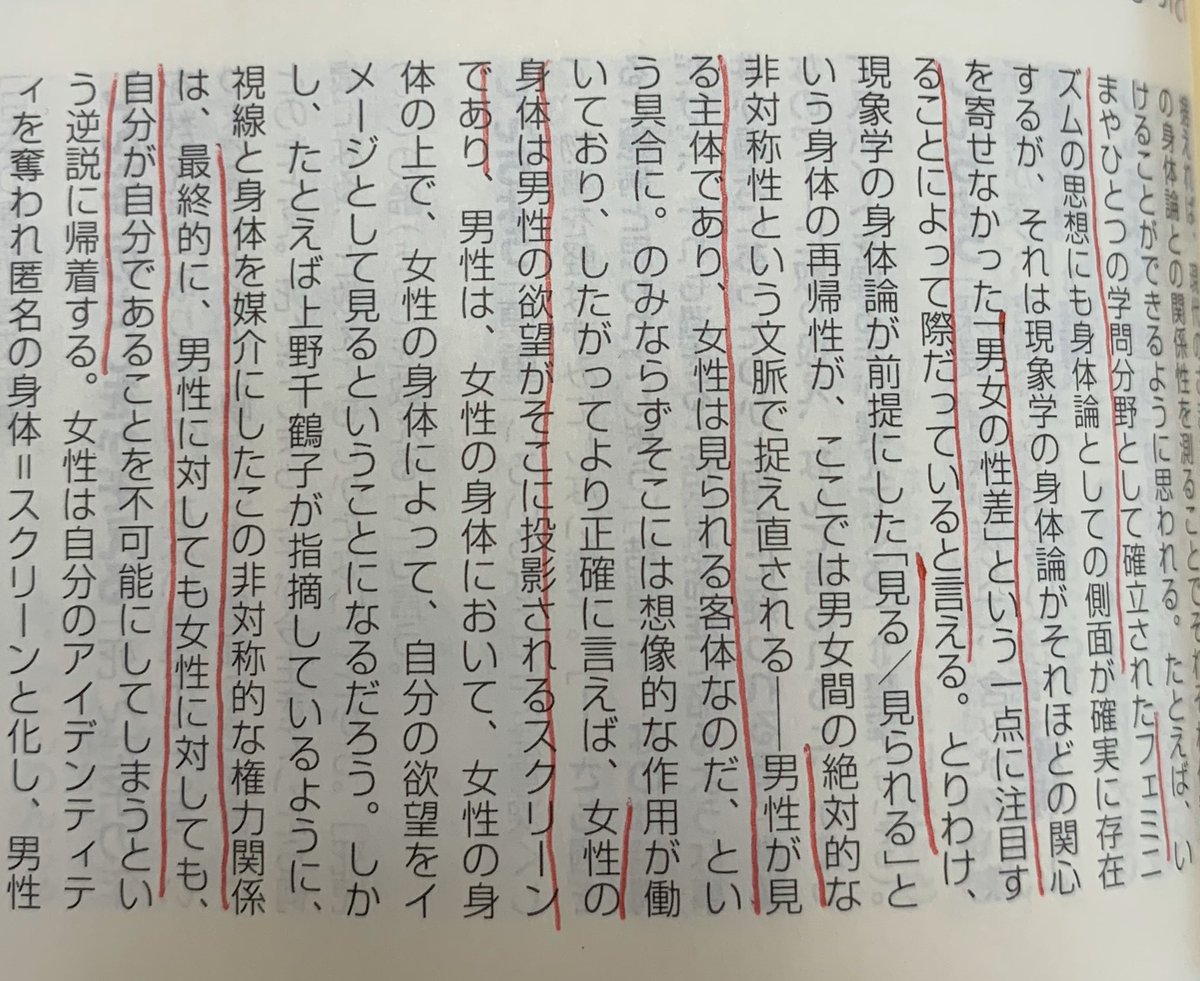 の身体論との関係性を測ることで
けることができるように思われる。たとえば、い
まやひとつの学問分野として確立されたフェミニ
ズムの思想にも身体論としての側面が確実に存在
するが、それは現象学の身体論がそれほどの関心
を寄せなかった「男女の性差」という一点に注目す
ることによって際だっていると言える。とりわけ、
現象学の身体論が前提にした「見る/見られる」と
いう身体の再帰性が、ここでは男女間の絶対的な
非対称性という文脈で捉え直される――男性が見
る主体であり、女性は見られる客体なのだ、とい
う具合に。のみならずそこには想像的な作用が働
いており、したがってより正確に言えば、女性の
身体は男性の欲望がそこに投影されるスクリーン
であり、男性は、女性の身体において、女性の身
体の上で、女性の身体によって、自分の欲望をイ
メージとして見るということになるだろう。しか
し、たとえば上野千鶴子が指摘しているように、
視線と身体を媒介にしたこの非対称的な権力関係
は、最終的に、男性に対しても女性に対しても、
自分が自分であることを不可能にしてしまうとい
う逆説に帰着する。女性は自分のアイデンティテ
ィを奪われ匿名の身体=スクリーンと化し、男性